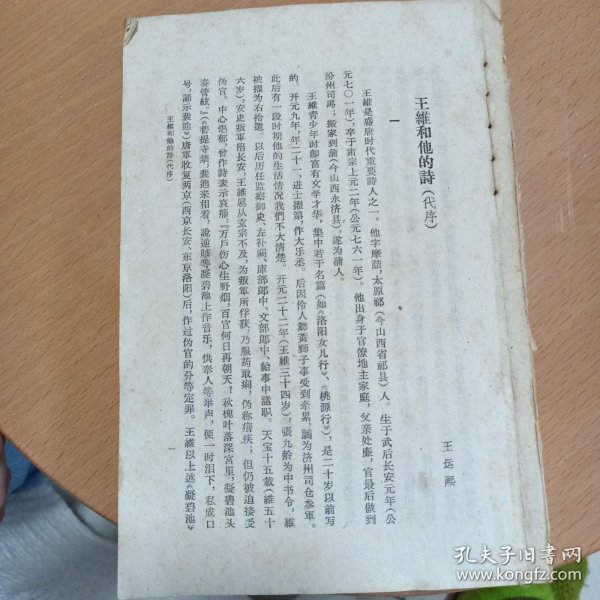 王維和他的詩（代序）
王运熙
一
王維是盛唐时代重要詩人之一。他字摩詰，太原祁（今山西省祁县）人。生于武后长安元年（公
元七〇一年），卒于肃宗上元二年（公元七六一年）。他出身于官僚地主家庭，父亲处廉，官最后做到
汾州司馬；搬家到蒲（今山西永济县），遂为蒲人。
王維青少年时即富有文学才华，集中若干名篇（如《洛阳女儿行》、《桃源行》），是二十岁以前写
的。开元九年，年二十一，进士擢第，作大乐丞。后因伶人舞黄狮子事受到牵累，謫为济州司仓参軍。
此后有一段时期他的生活情况我們不大清楚。开元二十二年（王維三十四岁），張九龄为中书令，維
被擢为右拾遗，以后历任监察御史、左补闕、庫部郎中、文部郎中、給事中諸职。天宝十五載（維五十
六岁），安史叛軍陷长安，王維扈从玄宗不及，为叛軍所俘获；乃服药取痢，伪称瘖疾；但仍被迫接受
伪官。中心悒郁，曾作詩表示哀痛：“万戶伤心生野烟，百官何日再朝天？秋槐叶落深宮里，凝碧池头
奏管絃。”（《菩提寺禁，裴迪来相看，說逆賊等凝碧池上作音乐，供奉人等举声，便一时泪下，私成口
号，誦示裴迪》）唐軍收复两京（西京长安、东京洛阳）后，作过伪官的分等定罪。王維以上述《凝碧池》
王維和他的詩（代序）
一
孔夫子旧书网
www.kongfz.com